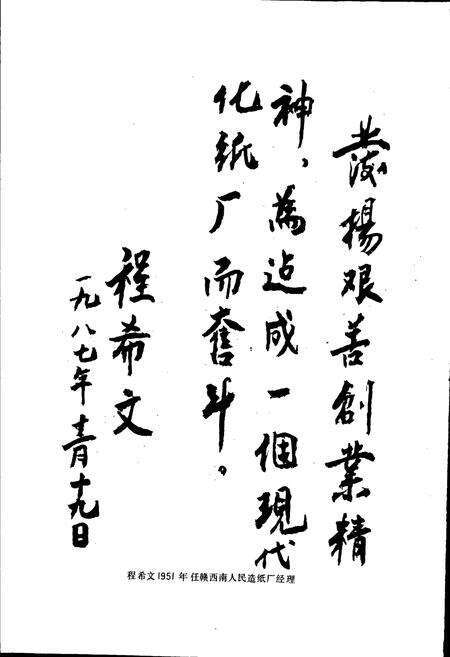 發揚艰苦創業精
神，為迠成一個現代
化纸厂而奮斗。
程希文
一九八七年十二月十九日
程希文1951年任赣西南人民造纸厂经理